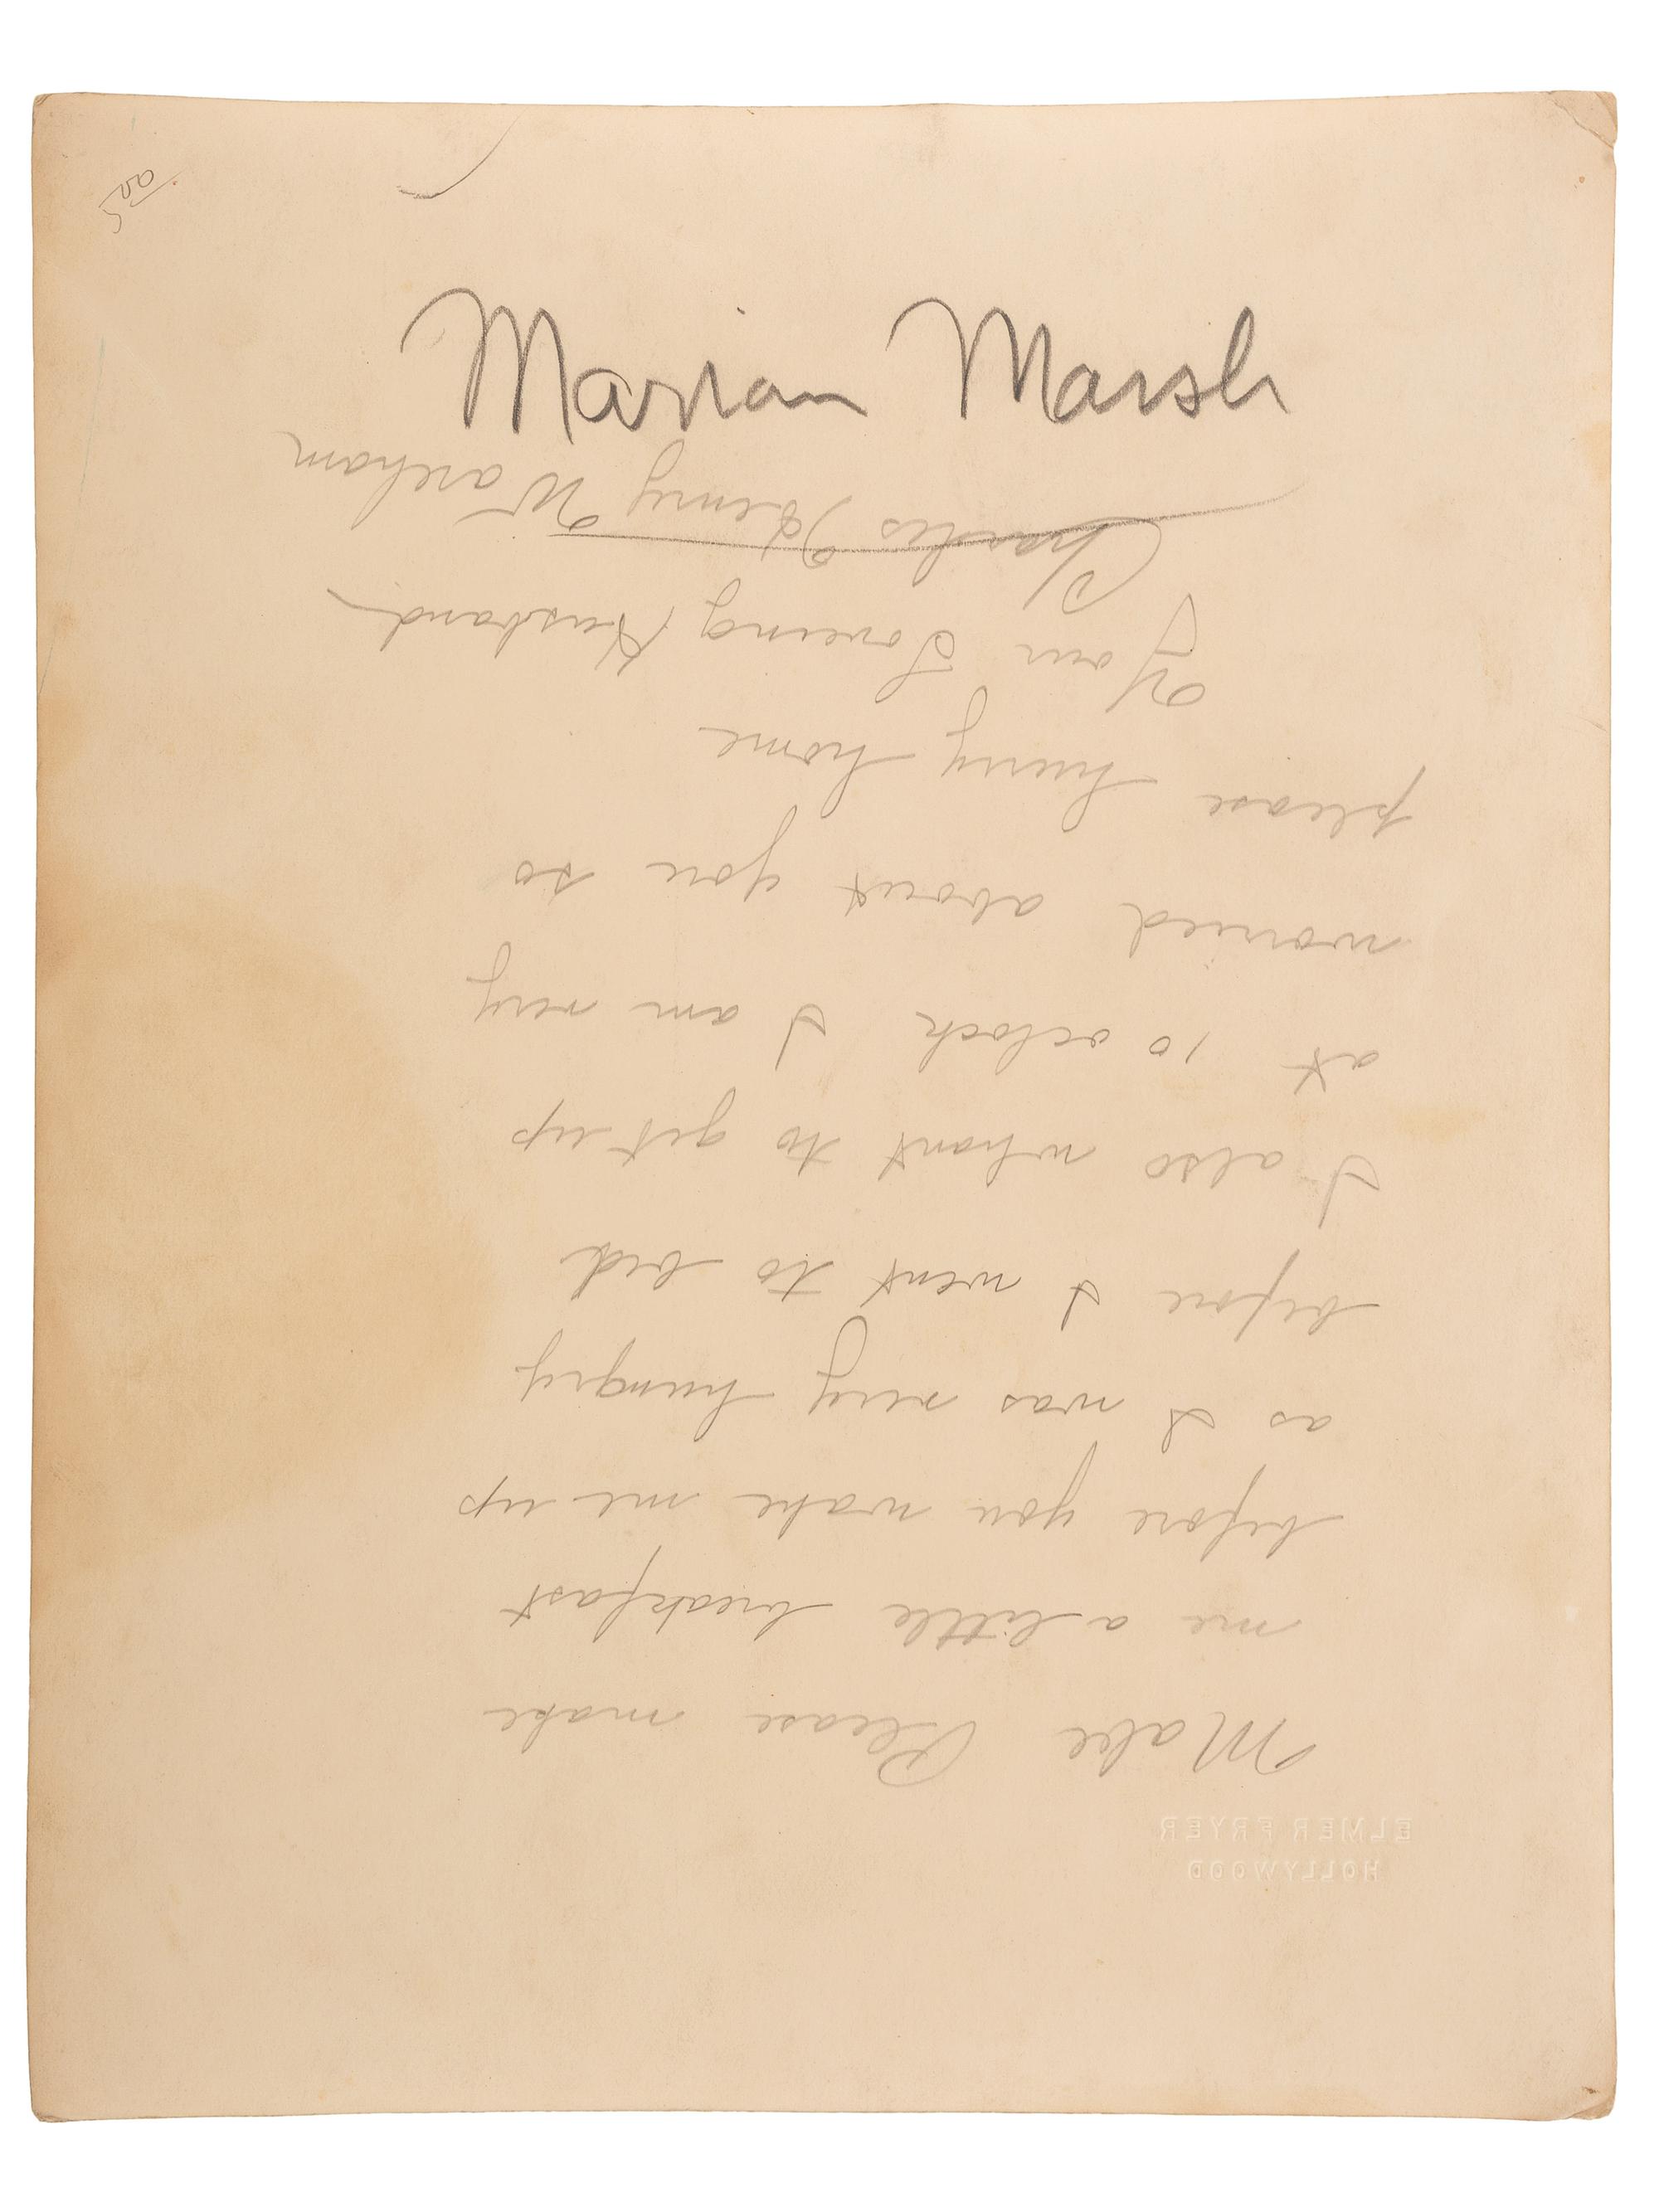 Marian Marsh
Mabe Please make
me a little breakfast
before you wake me up
as I was very hungry
before I went to bed
I also whant to get up
at 10 oclock I am very
worried about you so
please hurry home
Your Loveing Husband
Charles Henry Wareham
ELMER FRYER
HOLLYWOOD